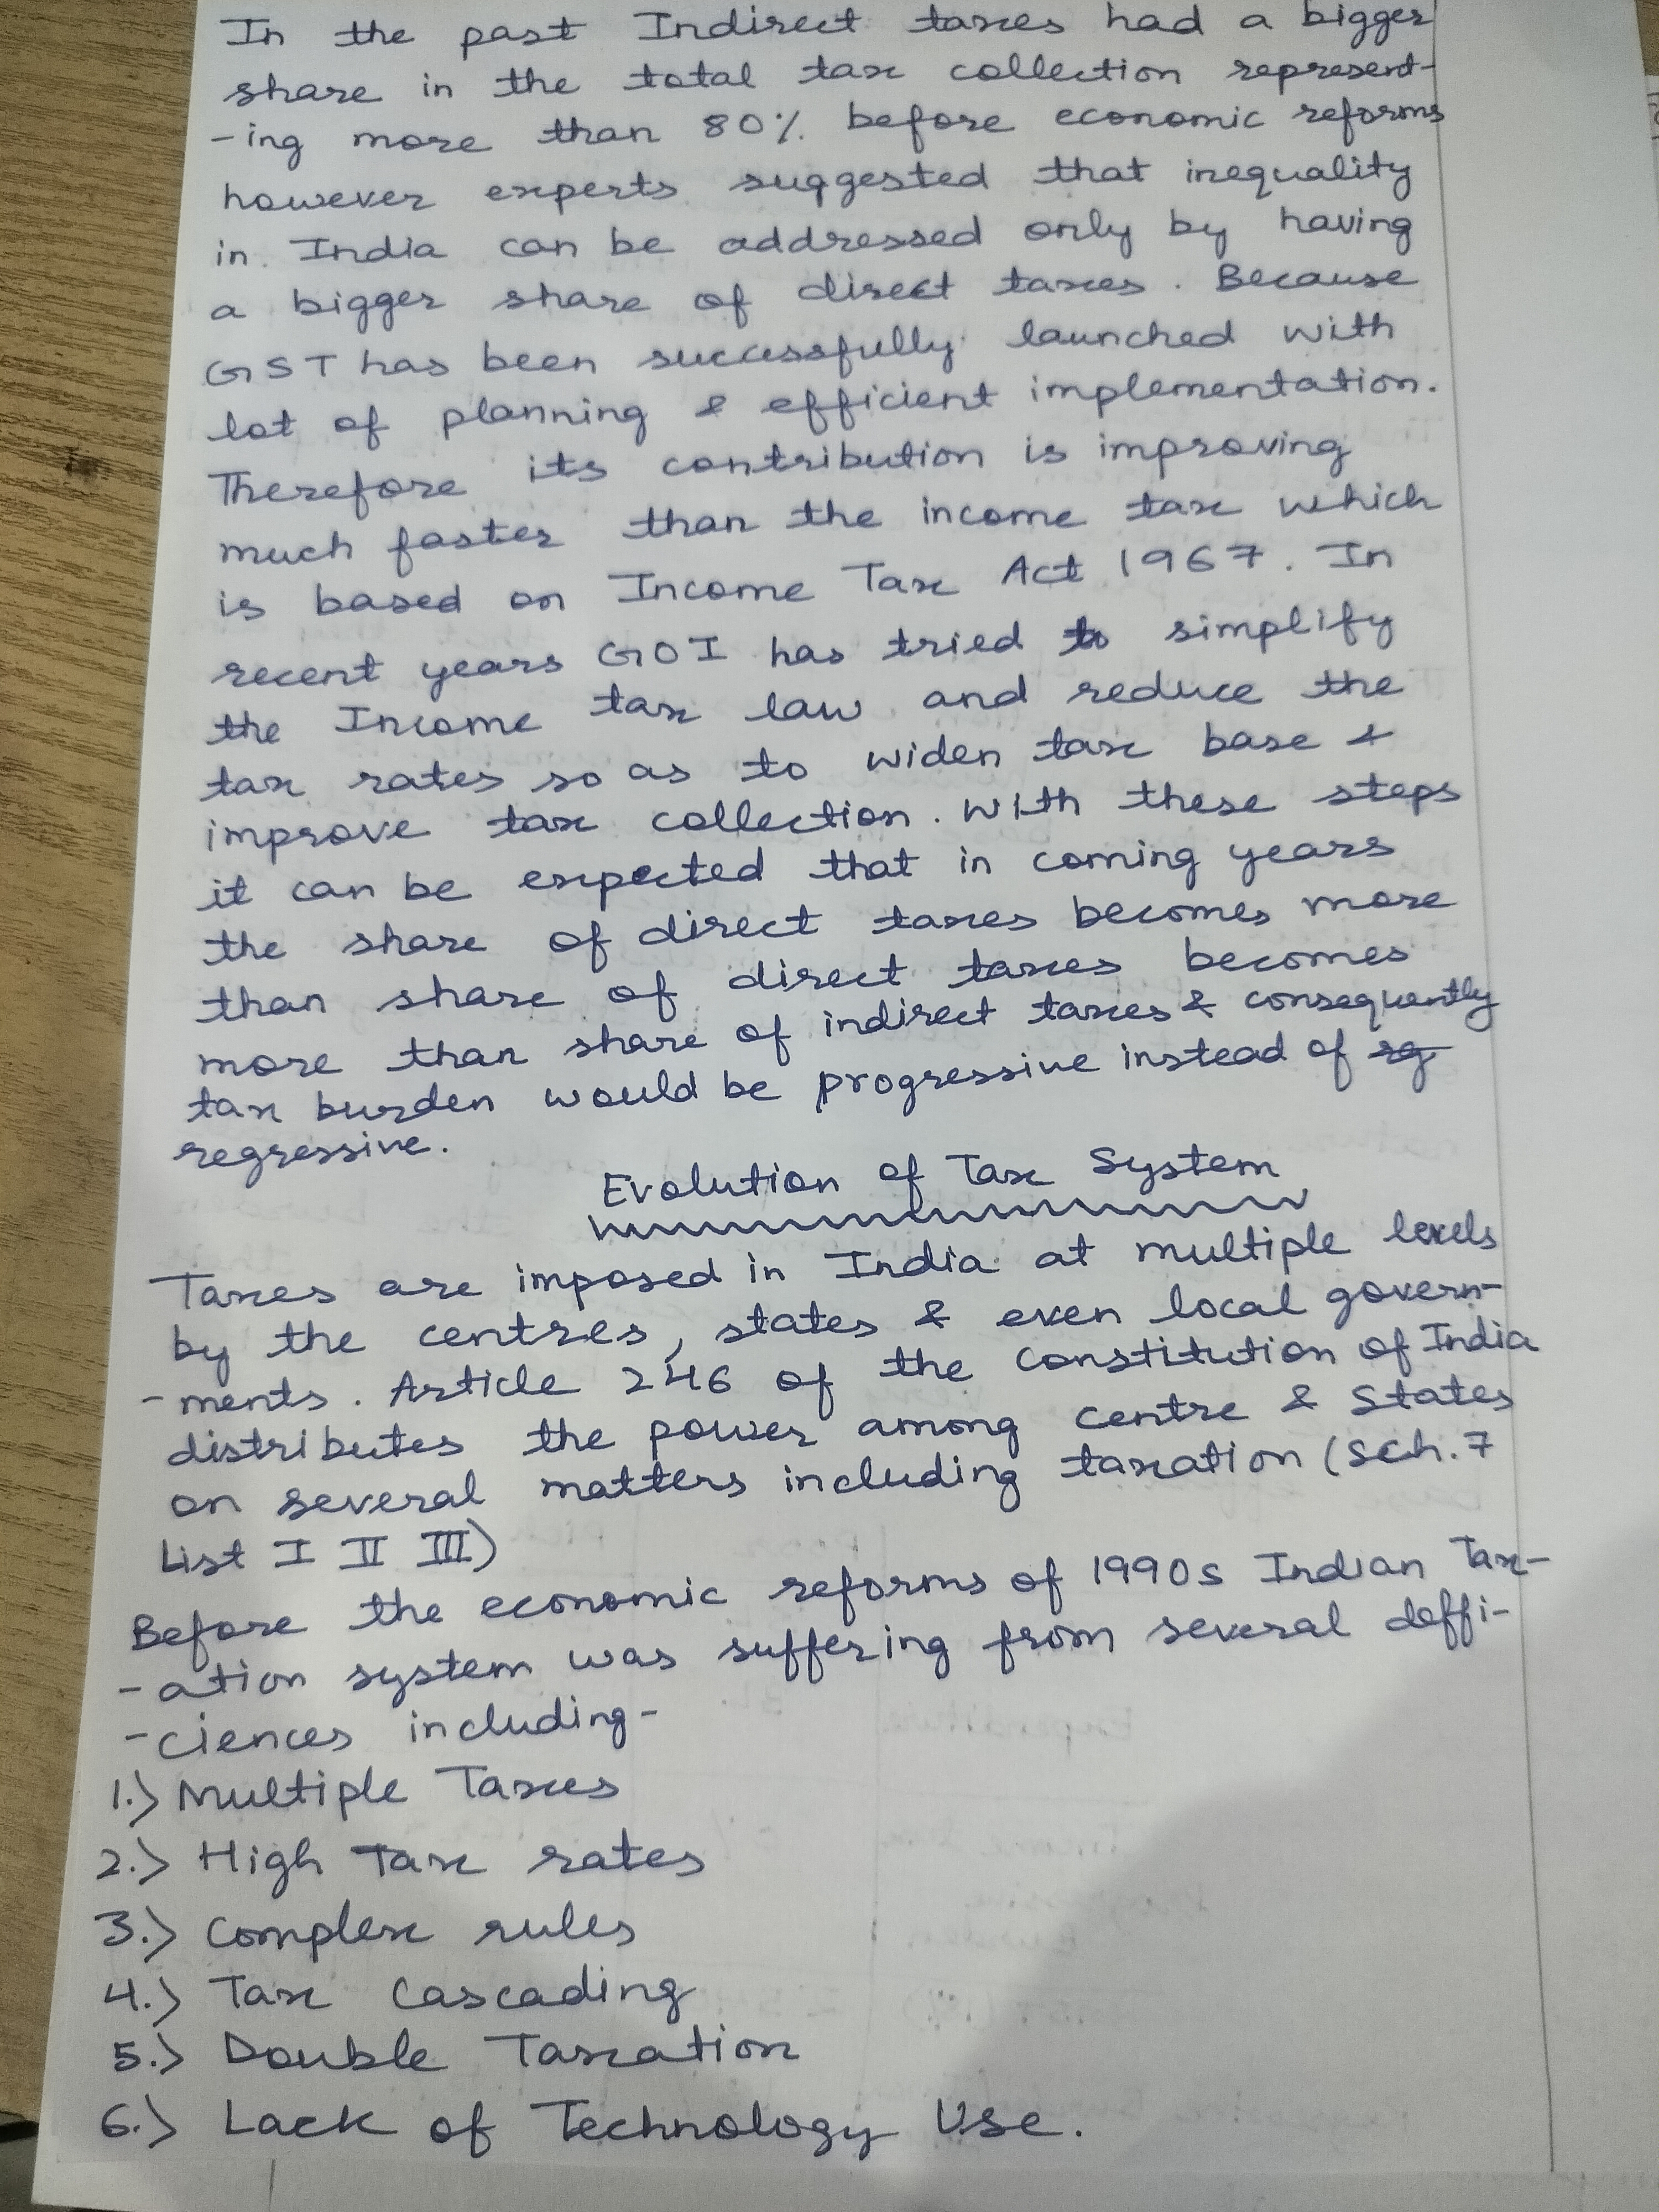 In the past Indirect taxes had a bigger
share in the total tax collection represent-
-ing more than 80% before economic reforms
however experts suggested that inequality
in India can be addressed only by having
a bigger share of direct taxes. Because
GST has been successfully launched with
lot of planning & efficient implementation.
Therefore its contribution is improving
much faster than the income tax which
is based on Income Tax Act 1967. In
recent years GOI has tried to simplify
the Income tax law and reduce the
tax rates so as to widen tax base &
improve tax collection. With these steps
it can be expected that in coming years
the share of direct taxes becomes more
than share of direct taxes becomes
more than share of indirect taxes & consequently
tax burden would be progressive instead of rg
regressive.
Evolution of Tax System
Taxes are imposed in India at multiple levels
by the centres, states & even local govern-
-ments. Article 246 of the Constitution of India
distributes the power among centre & States
on several matters including taxation (sch. 7
List I II III)
Before the economic reforms of 1990s Indian Tax-
-ation system was suffering from several deffi-
-ciences including-
1.) Multiple Taxes
2.) High Tax rates
3.) Complex rules
4.) Tax Cascading
5.) Double Taxation
6.) Lack of Technology Use.